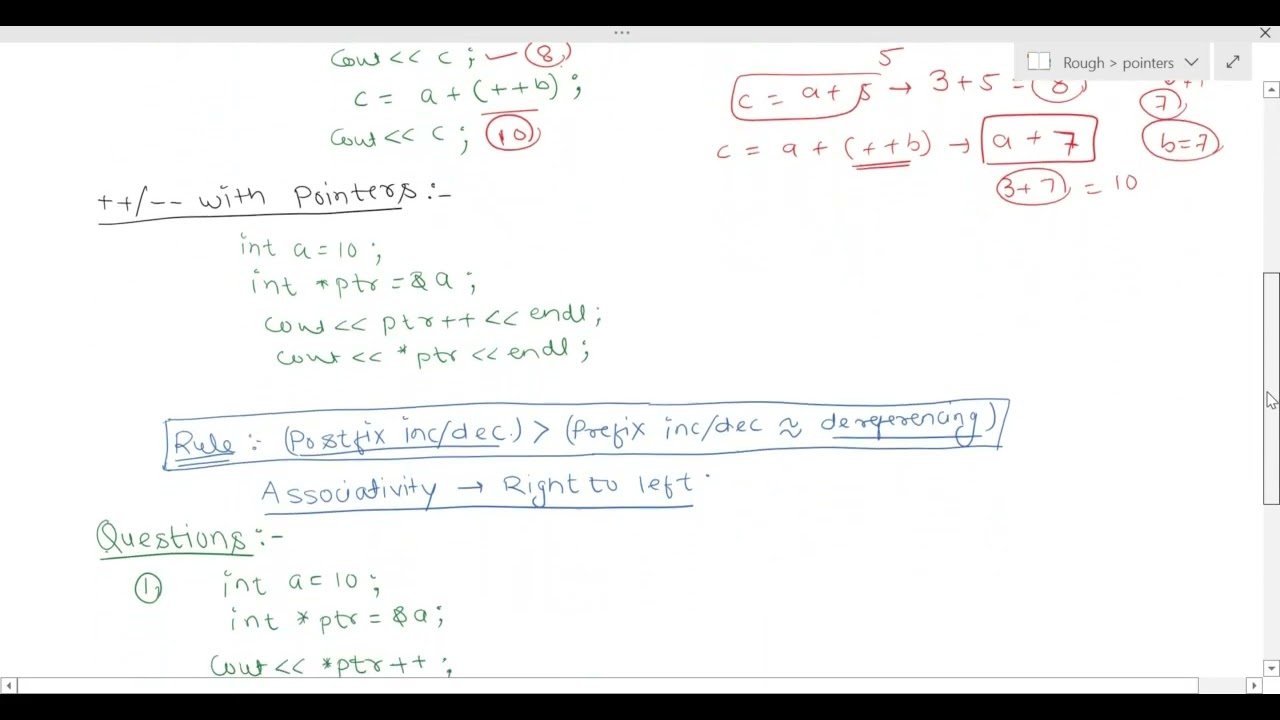 cout << c ; (8)
c = a + (++b) ;
cout << c ; (10)
Rough > pointers
5
c = a + 5 → 3 + 5 = 8
7
c = a + (++b) → a + 7
b=7
3+7 = 10
++/-- with Pointers :-
int a = 10 ;
int *ptr = &a ;
cout << ptr++ << endl ;
cout << *ptr << endl ;
Rule :- (Postfix inc/dec.) > (Prefix inc/dec ≈ dereferencing)
Associativity → Right to left
Questions :-
① int a = 10 ;
int *ptr = &a ;
cout << *ptr++ ;